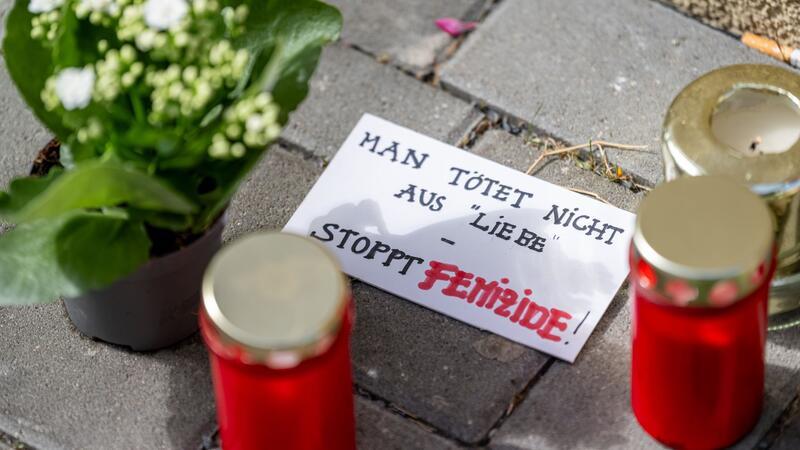 MAN TÖTET NICHT
AUS "LIEBE"
–
STOPPT FEMIZIDE!